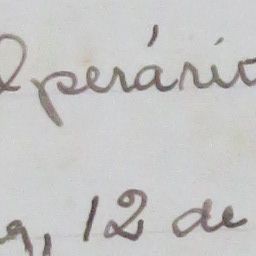 Operário
, 12 de